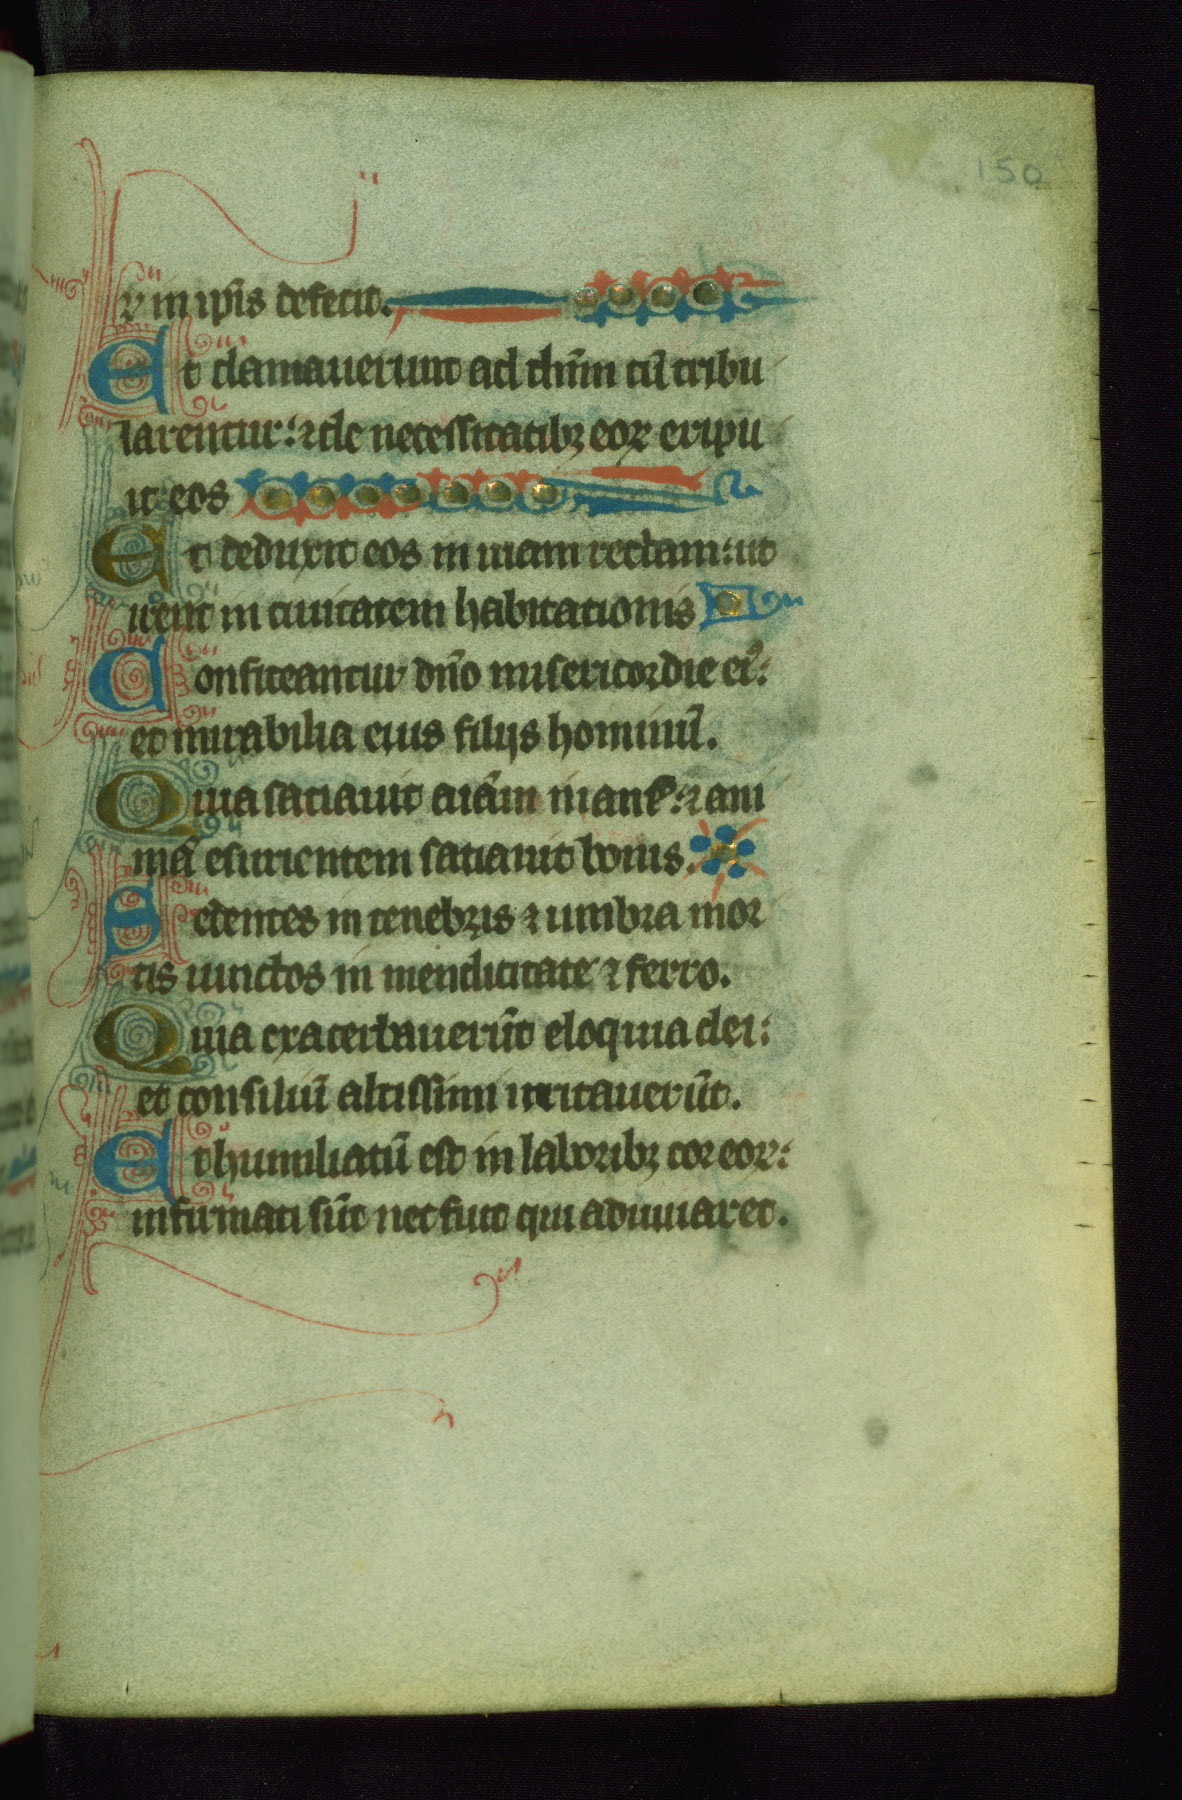 150
ꝝ in ip̄is defecit.
Et clamauerunt ad dn̄m cū tribu
larentur: ⁊ de necessitatibꝫ eoꝝ eripu
it eos
Et deduxit eos in uiam rectam: ut
irent in ciuitatem habitationis
Confiteantur dn̄o misericordie ei᷒:
et mirabilia eius filijs hominū.
Quia satiauit aiām inanē: ⁊ ani
mā esurientem satiauit bonis.
Sedentes in tenebris ⁊ umbra mor
tis uinctos in mendicitate ⁊ ferro.
Quia exacerbauerūt eloquia dei:
et consiliū altissimi irritauerūt.
Et humiliatū est in laboribꝫ cor eoꝝ:
infirmati sūt nec fuit qui adiuuaret.